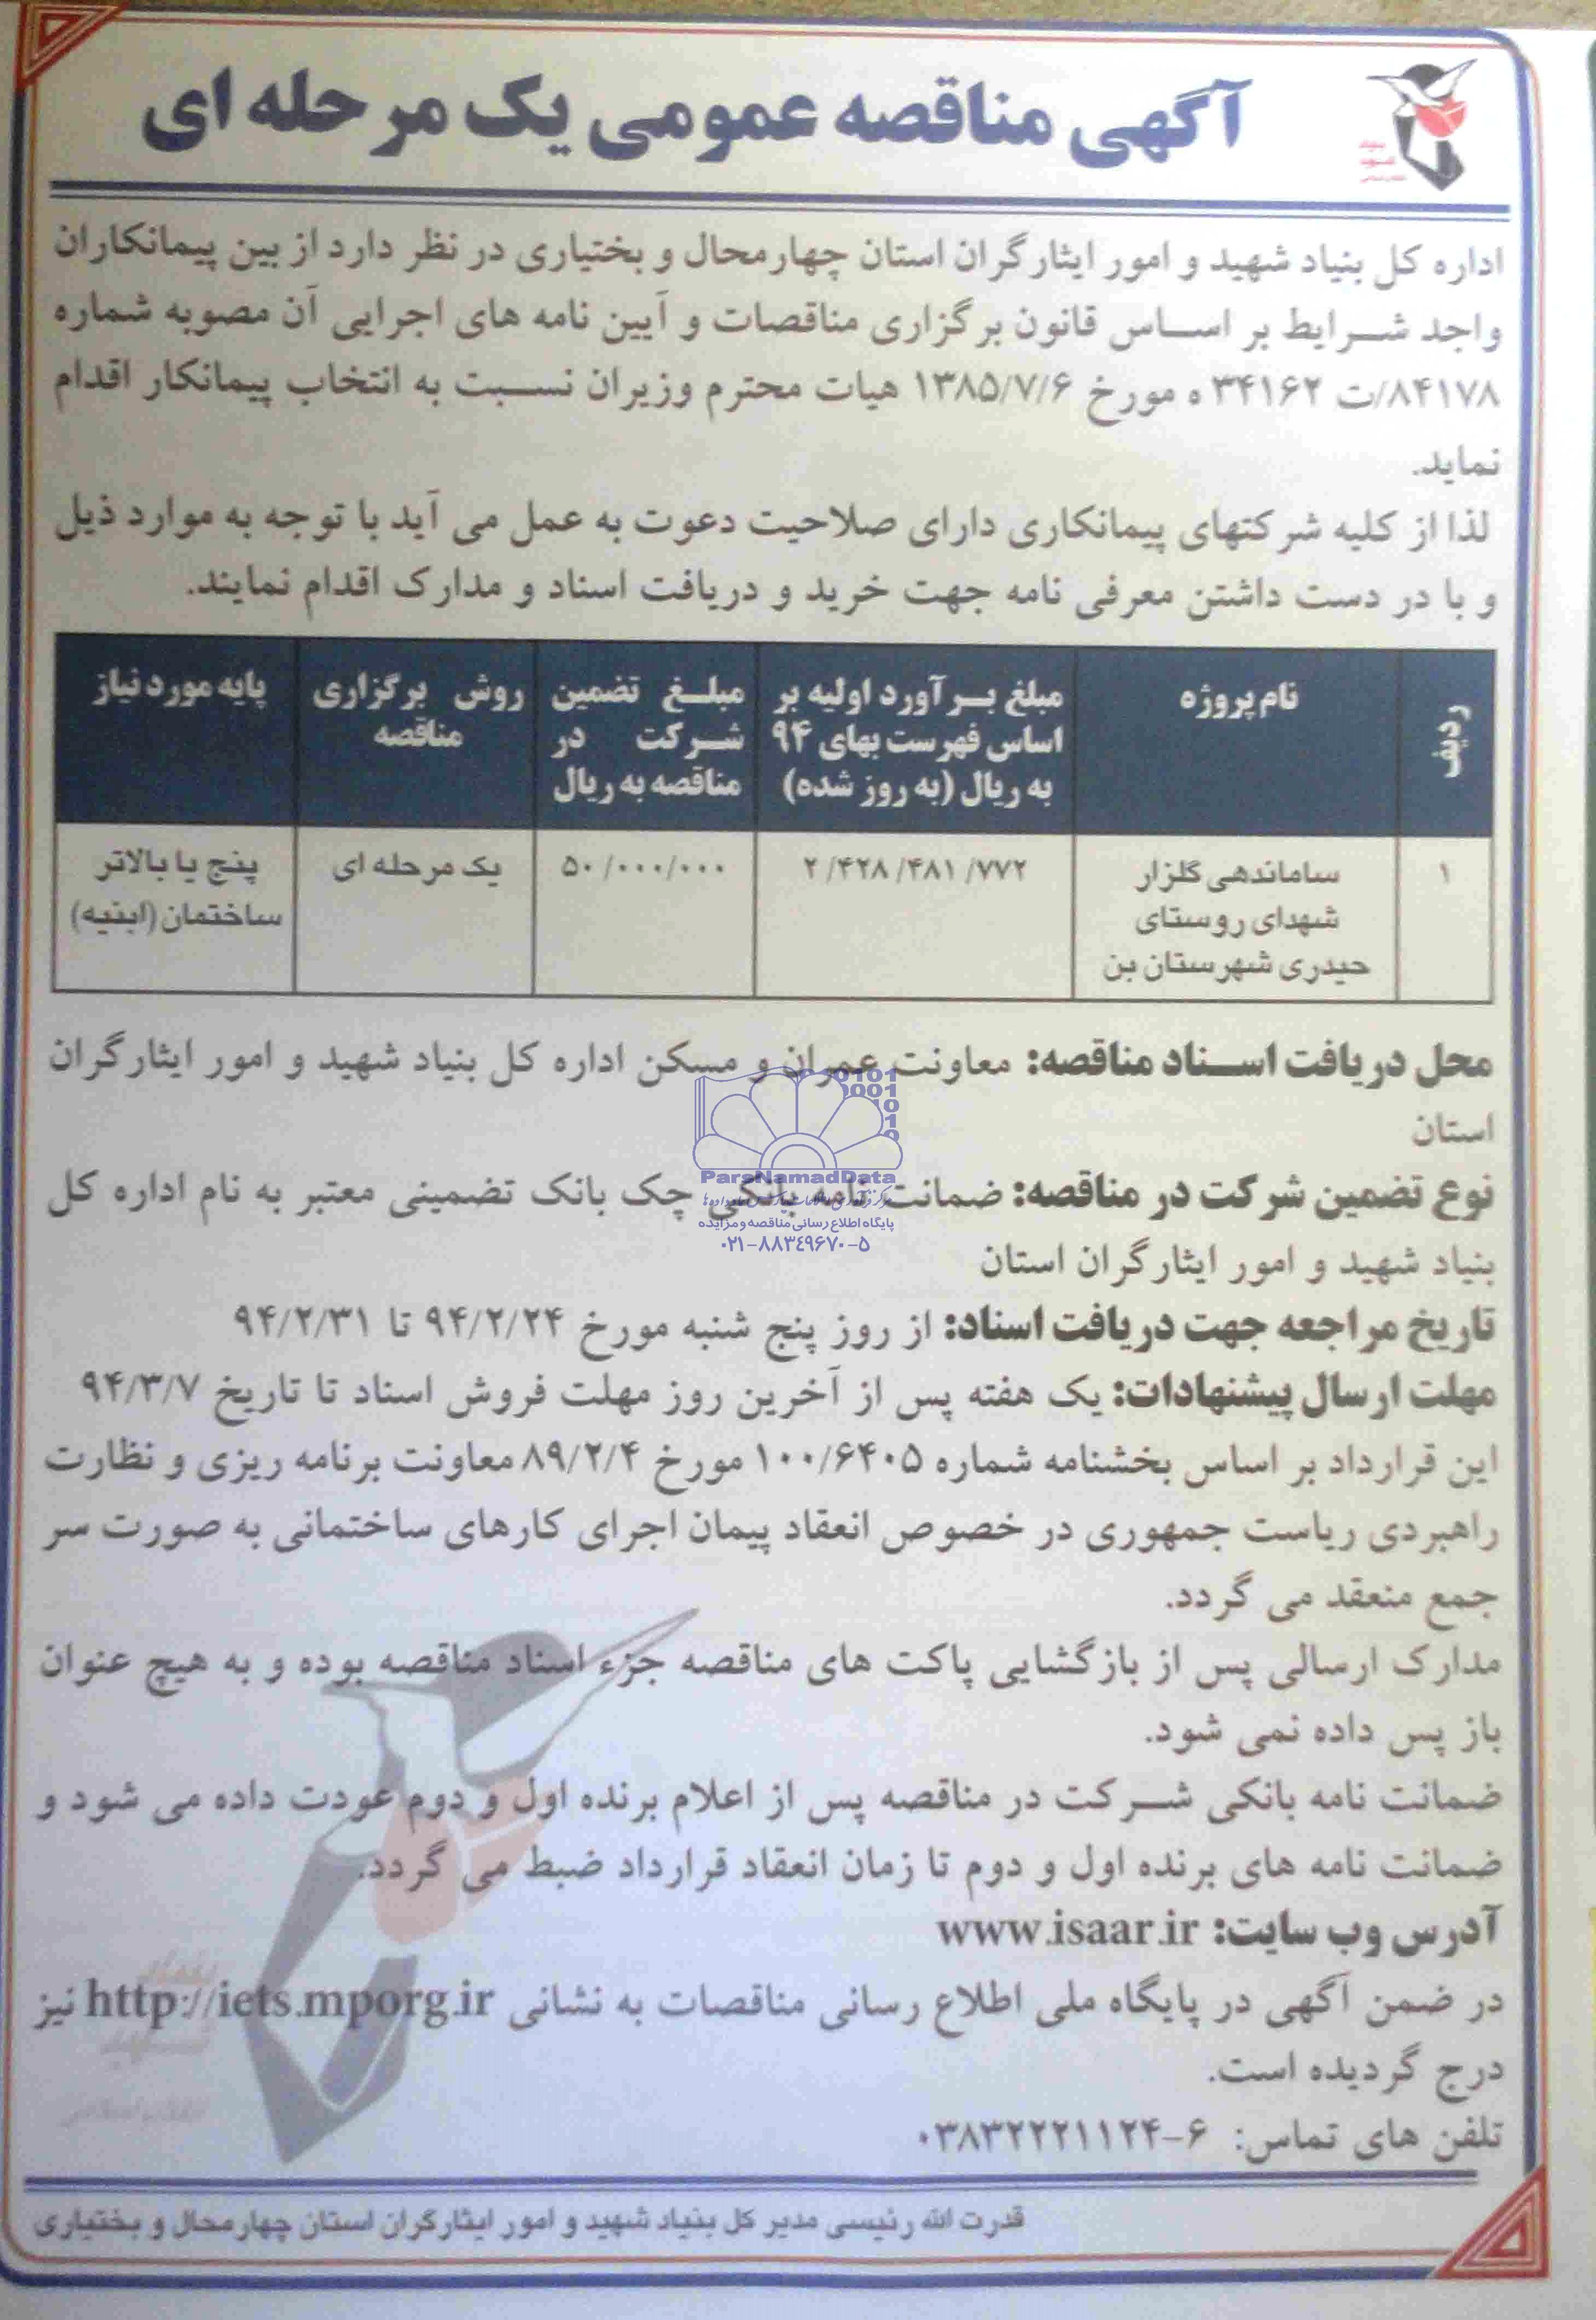 آگهی مناقصه عمومی یک مرحله ای
اداره کل بنیاد شهید و امور ایثارگران استان چهارمحال و بختیاری در نظر دارد از بین پیمانکاران
واجد شرایط بر اساس قانون برگزاری مناقصات و آیین نامه های اجرایی آن مصوبه شماره
۸۴۱۷۸/ت ۳۴۱۶۲ ه مورخ ۱۳۸۵/۷/۶ هیات محترم وزیران نسبت به انتخاب پیمانکار اقدام
نماید.
لذا از کلیه شرکتهای پیمانکاری دارای صلاحیت دعوت به عمل می آید با توجه به موارد ذیل
و با در دست داشتن معرفی نامه جهت خرید و دریافت اسناد و مدارک اقدام نمایند.
ردیف
نام پروژه
مبلغ برآورد اولیه بر
اساس فهرست بهای ۹۴
به ریال (به روز شده)
مبلغ تضمین
شرکت در
مناقصه به ریال
روش برگزاری
مناقصه
پایه مورد نیاز
۱
ساماندهی گلزار
شهدای روستای
حیدری شهرستان بن
۲/۴۲۸/۴۸۱/۷۷۲
۵۰/۰۰۰/۰۰۰
یک مرحله ای
پنج یا بالاتر
ساختمان (ابنیه)
محل دریافت اسناد مناقصه: معاونت عمران و مسکن اداره کل بنیاد شهید و امور ایثارگران
استان
نوع تضمین شرکت در مناقصه: ضمانت نامه بانکی چک بانک تضمینی معتبر به نام اداره کل
بنیاد شهید و امور ایثارگران استان
تاریخ مراجعه جهت دریافت اسناد: از روز پنج شنبه مورخ ۹۴/۲/۲۴ تا ۹۴/۲/۳۱
مهلت ارسال پیشنهادات: یک هفته پس از آخرین روز مهلت فروش اسناد تا تاریخ ۹۴/۳/۷
این قرارداد بر اساس بخشنامه شماره ۱۰۰/۶۴۰۵ مورخ ۸۹/۲/۴ معاونت برنامه ریزی و نظارت
راهبردی ریاست جمهوری در خصوص انعقاد پیمان اجرای کارهای ساختمانی به صورت سر
جمع منعقد می گردد.
مدارک ارسالی پس از بازگشایی پاکت های مناقصه جزء اسناد مناقصه بوده و به هیچ عنوان
باز پس داده نمی شود.
ضمانت نامه بانکی شرکت در مناقصه پس از اعلام برنده اول و دوم عودت داده می شود و
ضمانت نامه های برنده اول و دوم تا زمان انعقاد قرارداد ضبط می گردد.
آدرس وب سایت: www.isaar.ir
در ضمن آگهی در پایگاه ملی اطلاع رسانی مناقصات به نشانی http://iets.mporg.ir نیز
درج گردیده است.
تلفن های تماس: ۶-۰۳۸۳۲۲۲۱۱۲۴
قدرت الله رئیسی مدیر کل بنیاد شهید و امور ایثارگران استان چهارمحال و بختیاری
ParsNamadData
پایگاه اطلاع رسانی مناقصه و مزایده
۰۲۱-۸۸۳۴۹۶۷۰-۵